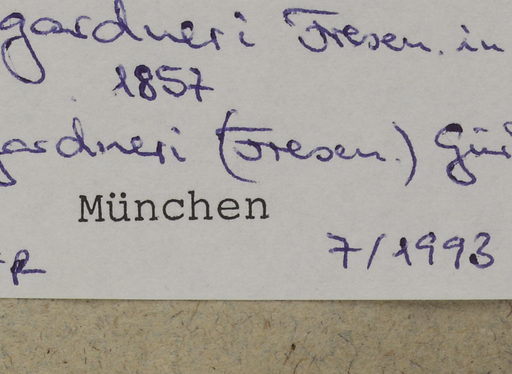 gardneri Fresen. in
1857
gardneri (Fresen.) Gür
München
7/1993